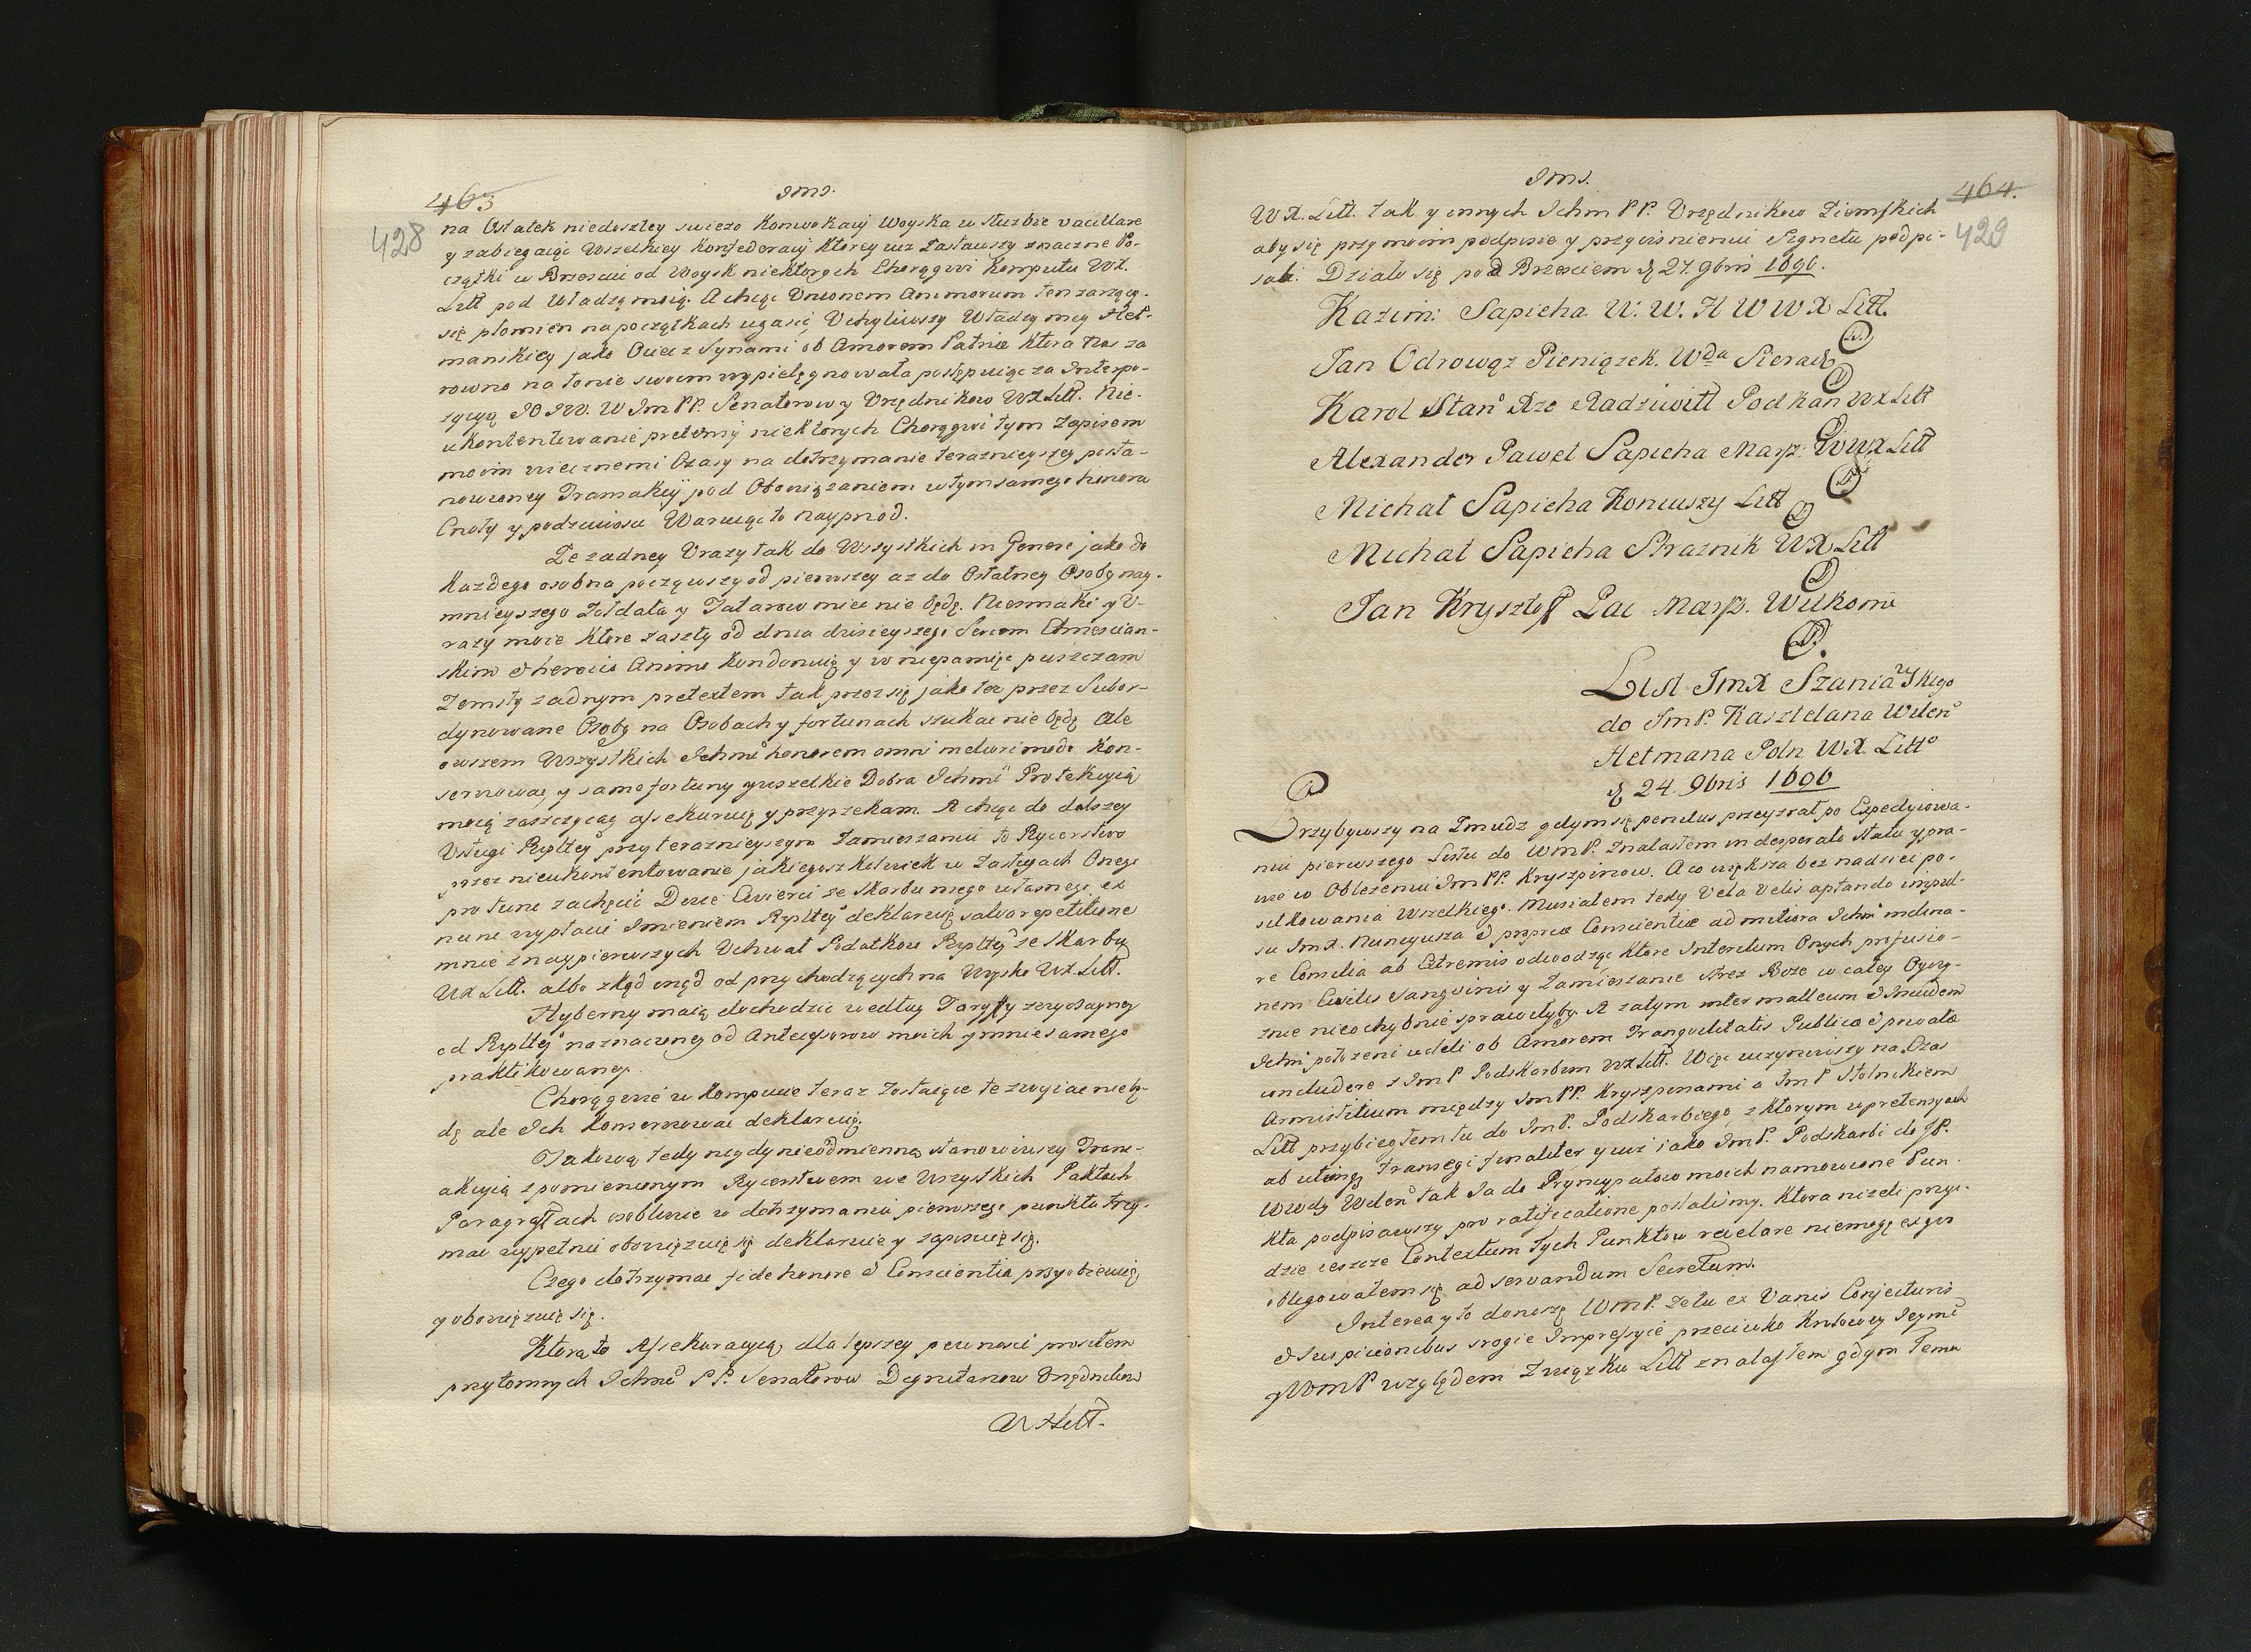 463
428
na Ostatek niedoszłey swiezo Konwokacij Woyska w słuzbie vacillare
y zabiegaiąc wszelkiey Konfederacij Ktorey iuz zastawszy znaczne Po-
czątki w Brzesciu od Woysk niektorych Chorągwi Komputu WX.
Litt pod Władzą moią. A chcąc Unionem Animorum ten zarzący-
się płomien na początkach ugasić, Uchyliwszy Władzy mey Het-
manskiey jako Ociec z Synami ob Amorem Patriæ Ktora nas za
rowno na łonie swoim wypielęgnowała postępuiąc za Interpo-
zycyą JO JW. W ImPP. Senatorow y Urzędnikow WXLitt. Nie-
ukontentowanie pretensij niektorych Chorągwi tym Zapisem
moim wiecznemi Czasy na dotrzymanie teraznieyszey posta-
nowioney Transakcyi pod Obowiązaniem w tym samego honoru
Cnoty y podsciwosci Waruiąc to nayprzod.
Ze zadney Urazy tak do Wszystkich in Genere jako do
Kazdego osobna począwszy od pierwszey az do Ostatney Osoby nay-
mnieyszego Zołdata y Tatarow miec nie będę. Niesmaki y U-
razy moie Ktore zaszły od dnia dzisieyszego Sercem Chrescian-
skim & heroico Animo Kondonuię y w niepamięc puszczam
Zemsty zadnym pretextem tak przez się jako tez przez Subor-
dynowane Osoby na Osobach y fortunach szukac nie będę Ale
owszem Wszystkich Ichmć honorem omni meliori modo Kon-
serwowac, y same fortuny y wszelkie Dobra Ichmć Protekcyią
moią zaszczycac assekuruię y przyrzekam. A chcąc do dalszey
Usługi Rzpltey przy teraznieyszym Zamieszaniu to Rycerstwo
przez nieukontentowanie jakiegoszkolwiek w Zasługach Onego
pro tunc zachęcić Dwie Cwierci ze Skarbu mego własnego ex
nunc wypłacić Imieniem Rzpltey deklaruię salva repetitione
mnie z naypierwszych Uchwał Podatkow Rzpltey ze Skarbu
WX Litt. albo zkąd inąd od przychodzących na Woysko WX Litt.
Hyberny maią dochodzic według Taryffy zwyczayney
od Rzpltey naznaczoney od Antecessorow moich y mnie samego
praktikowaney.
Chorągwie w Kompucie teraz zostaiące te zwyiac nie bę-
dę ale Ich Konserwowac deklaruię.
Takową tedy nigdy nieodmienną stanowiwszy Trans-
akcyią z pomienionym Rycerstwem we Wszystkich Paktach
Paragraffach osobliwie w dotrzymaniu pierwszego punktu trzy-
mac wypełnic obowięzuię się deklaruie y zapisuię się.
Czego dotrzymac fide honore & Conscientia przyobiecuię
y obowięzuię się.
Ktorą to Assekuracyią dla lepszey pewnosci prosiłem
przytomnych Ichmć PP. Senatorow Dygnitarzow Urzędnikow
WXLitt.
464.
429
WX. Litt. tak y innych Ichm PP. Urzędnikow Ziemskich
aby się przy moim podpisie y przycisnieniu Sygnetu podpi-
sali. Działo się pod Brzesciem d 27. 9bris 1696.
Kazim: Sapieha W. W. H W W X Litt.
Jan Odrowąz Pieniązek. Wda Sieradz
Karol Stan Xże Radziwiłł Podkan WXLitt
Alexander Paweł Sapieha Marsz. WWX Litt
Michał Sapieha Koniuszy Litt
Michał Sapieha Straznik WX Litt
Jan Krysztoff Pac Marsz. Wilkomi
List ImX Szaniawskiego
do ImP. Kasztelana Wilen
Hetmana Poln WX. Litto
d 24. 9bris 1696
Przybywszy na Zmudz gdym się penitus przeyzrał po Expedyiowa-
niu pierwszego Listu do WmP. Znalasłem in desperato statu ypra-
wie w Oblezeniu ImPP. Kryszpinow. A co większa bez nadziei po-
siłkowania wszelkiego. Musiałem tedy Vela Velis aptando impul-
su ImX. Nuncyusza & propriæ Conscientiæ ad meliora Ichm inclina-
re Consilia ab Extremis odwodząc Ktore Interitum Onych profusio-
nem Civilis Sangvinis y Zamieszanie strez Boze w całey Oyczy-
znie nieochybnie sprawiłyby. A zatym inter malleum & Incudem
Ichm połozeni woleli ob Amorem Tranquilitatis Publicæ & privatæ
concludere z ImP Podskarbim WXLitt. Więc uczyniwszy na Czas
Armistitium między ImPP. Kryszpinami a ImP Stolnikiem
Litt przybiegłem tu do ImP. Podskarbiego, z ktorym w pretensyach
ab utrinq transegi finaliter y iuz jako ImP. Podskarbi do JP.
Wwdy Wilen tak Ja do Pryncypałow moich namowione Pun-
kta podpisawszy pro ratificatione posłalismy. Ktora nizeli przyi-
dzie ieszcze Contextum tych Punktow revelare niemogę exquo
obligowałem się ad servandum Secretum.
Interea y to donoszę WmP. ze tu ex Variis Conjecturis
& Suspicionibus srogie Impressyie przeciwko Krolowey Jeymć
y WmP względem Związku Litt znalasłem gdym temu